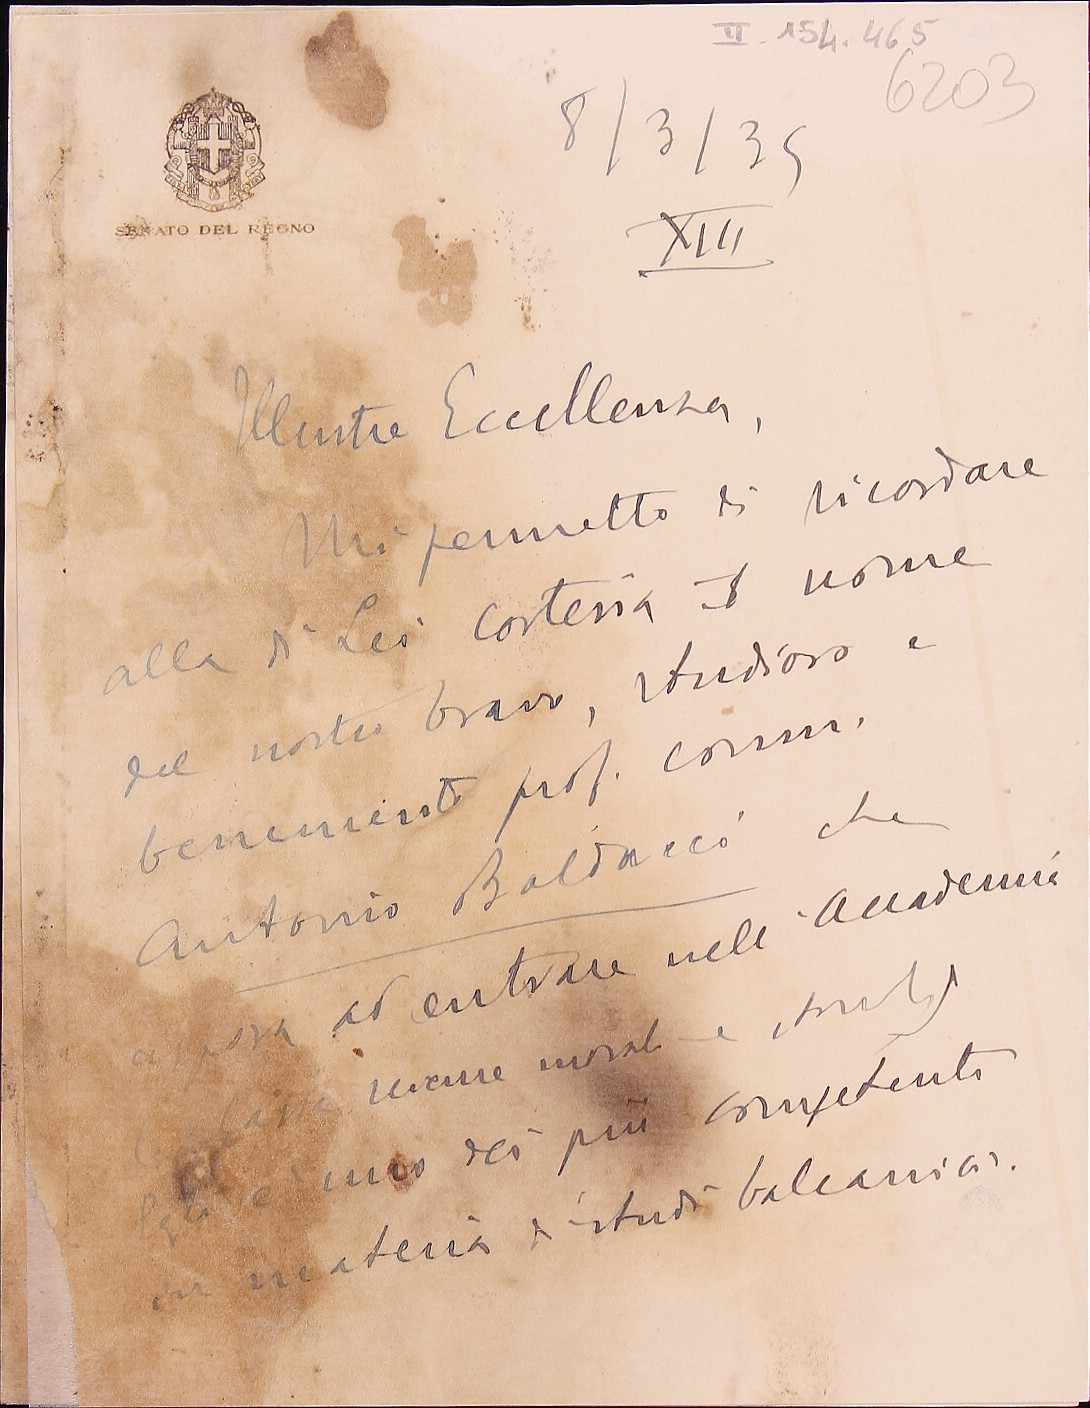 II. 154.465
6203
SENATO DEL REGNO
8/3/35
XIII
Illustre Eccellenza,
Mi permetto di ricordare
alla di Lei cortesia il nome
del nostro bravo, studioso e
benemerito prof. comm.
Antonio Baldacci che
aspira ad entrare nell'Accademia
morale e
Egli è uno dei più competenti
in materia di studi balcanici.